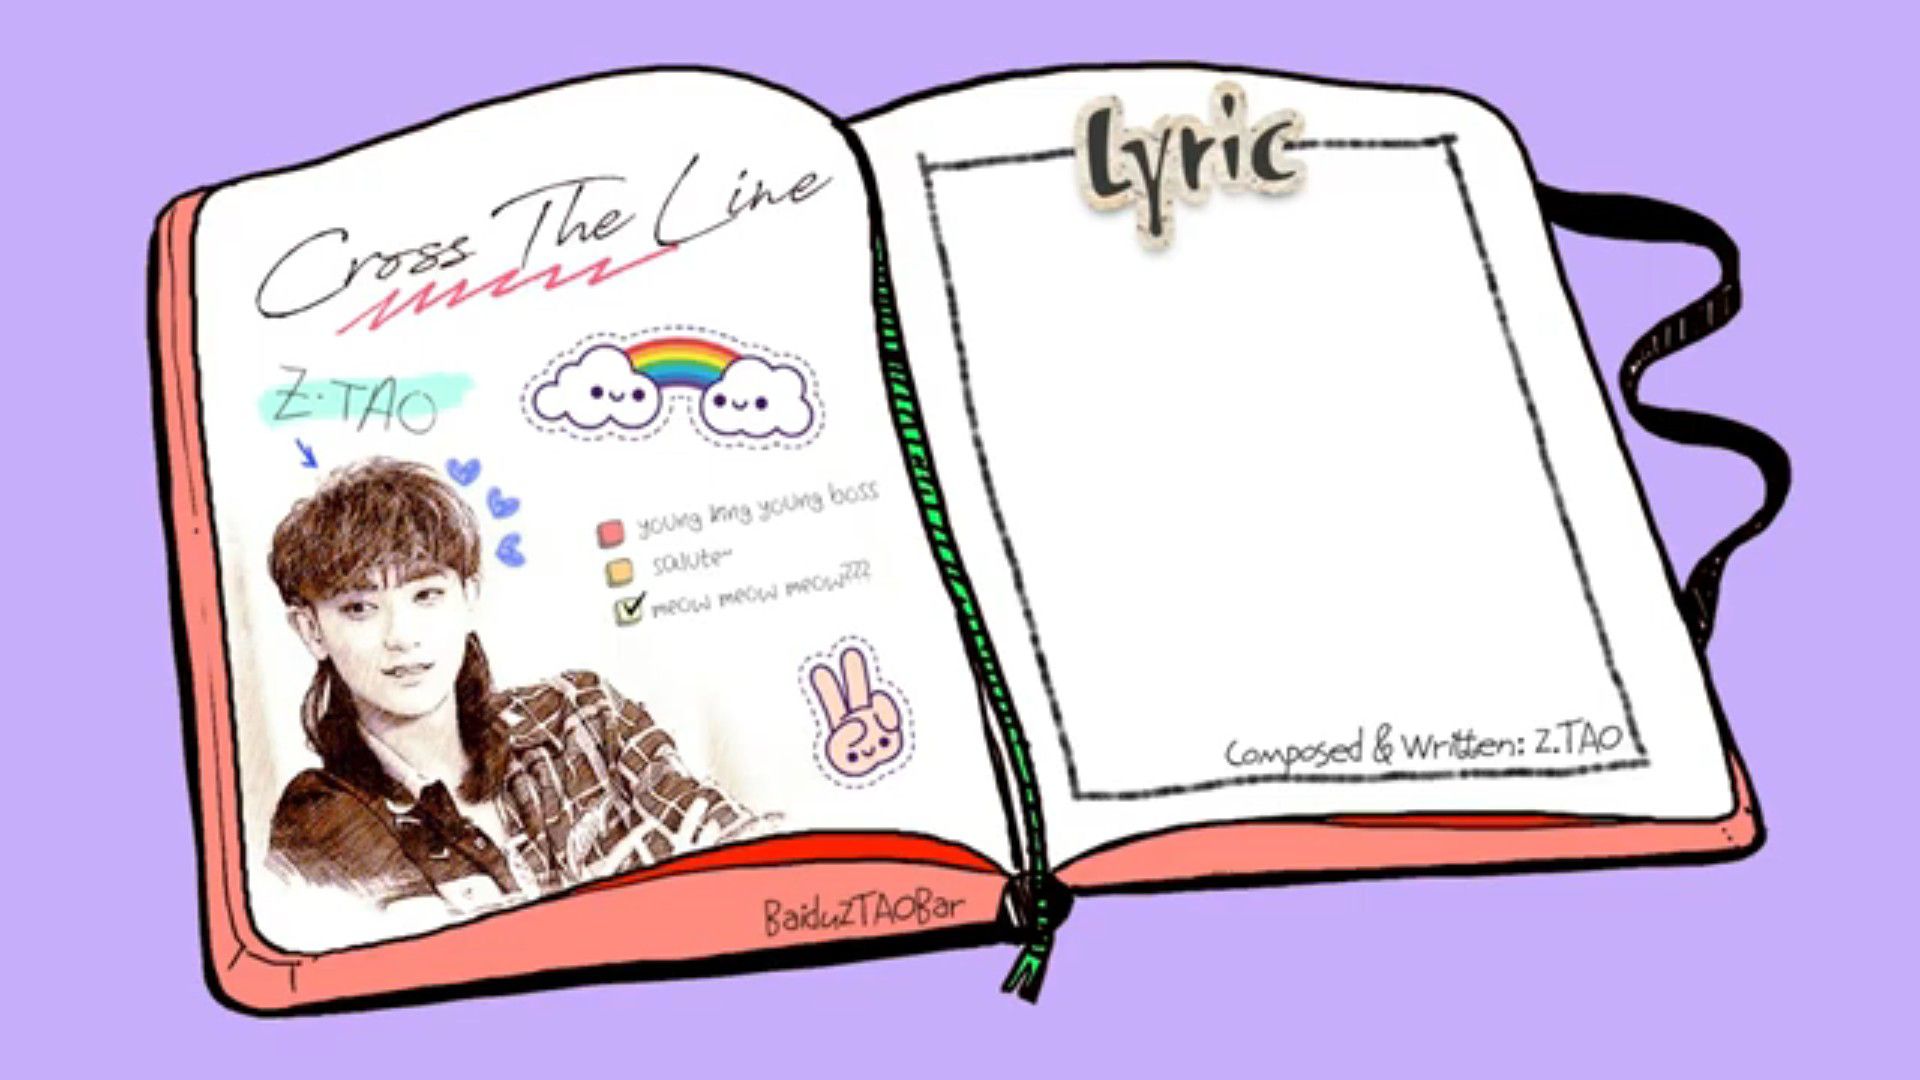 Cross The Line
Z.TAO
young king young boss
salute~
meow meow meow???
BaiduZTAOBar
Lyric
Composed & Written: Z.TAO